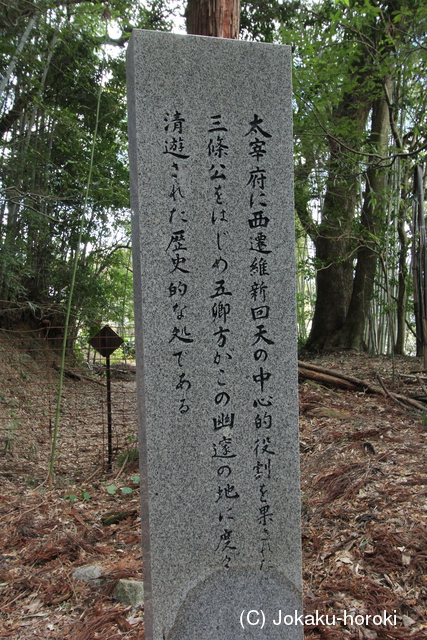 太宰府に西遷維新回天の中心的役割を果された
三條公をはじめ五卿方がこの幽邃の地に度々
清遊された歴史的な処である
(C) Jokaku-horoki